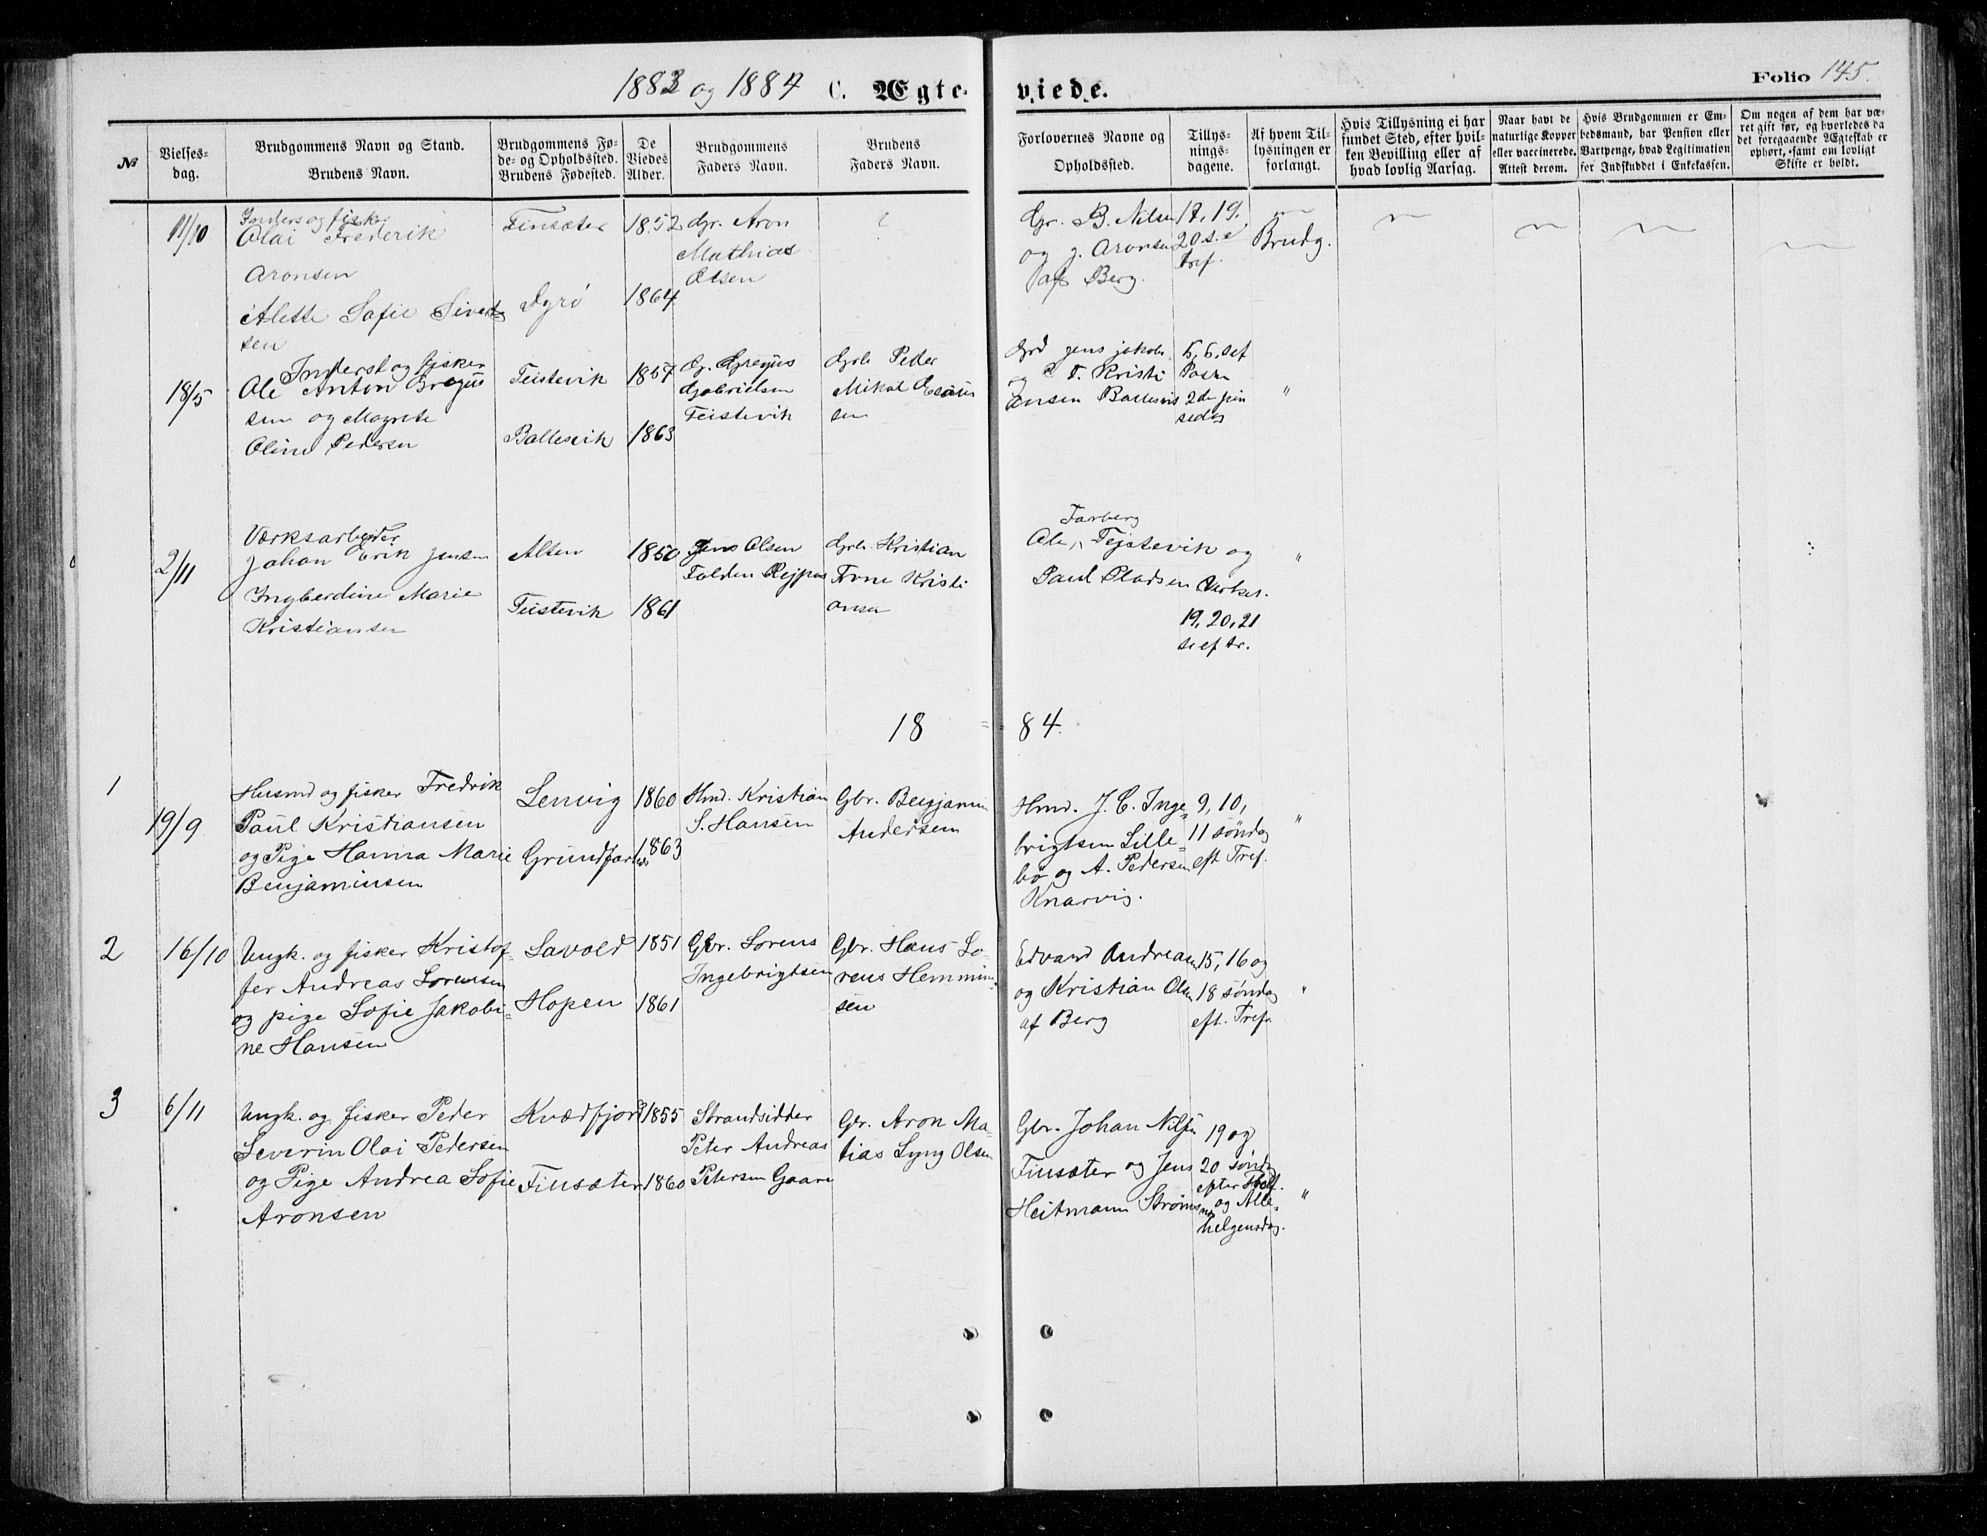 1883 og 1884 C. Ægte-
viede.
Folio 145.
№
Vielses-
dag.
Brudgommens Navn og Stand.
Brudens Navn.
Brudgommens Fø-
de- og Opholdssted.
Brudens Fødested.
De
Viedes
Alder.
Brudgommens
Faders Navn.
Brudens
Faders Navn.
Forlovernes Navne og
Opholdssted.
Tillys-
nings-
dagene.
Af hvem Til-
lysningen er
forlangt.
Hvis Tillysning ei har
fundet Sted, efter hvil-
ken Bevilling eller af
hvad lovlig Aarsag.
Naar havt de
naturlige Kopper
eller vaccinerede.
Attest derom.
Hvis Brudgommen er Em-
bedsmand, har Pension eller
Vartpenge, hvad Legitimation
for Indskuddet i Enkekassen.
Om nogen af dem har væ-
ret gift før, og hvorledes da
det foregaaende Ægteskab er
ophørt, samt om lovligt
Skifte er holdt.
11/10
Inders og fisker
Olai Frederik
Aronsen
Alette Sofie Sivert
sen
Finsæter
Dyrö
1852
1864
Gr. Aron
Mathias
Olsen
Gr. B. Nilsen
og J. Aronsen
af Berg.
17, 19.
20 s. e
tref.
Brudg.
18/5
Inderst og fisker
Ole Anton Gregus
sen og Magrete
Oline Pedersen
Teistevik
Ballesvik
1857
1863
G. Gregus
Gabrielsen
Teistevik
Grb Peder
Mikal Esaias
sen
Grd Jens Jakobs
og P. Kristi
ansen Ballesvik
5, 6. s ef
Paske
2de pin
sedag
"
2/11
Værksarbeider
Johan Erik Jensen
Ingberdine Marie
Kristiansen
Alten
Teistevik
1850
1861
Jens Olsen
Folden
Grb. Kristian
Arne Kristi
ansen
Farberg
Ole, Tejstevik og
Paul Pladsen
19, 20, 21
s. ef tr.
"
18 = 84.
1
19/9
Husmd og fisker Fredrik
Paul Kristiansen
og Pige Hanna Marie
Benjaminsen
Lenvig
Grundfarnes
1860
1863
Hmd. Kristian
S. Hansen
Gbr. Benjamin
Andersen
Hmd. J. C. Inge=
brigtsen Lille=
bø og A. Pedersen
Knarvig.
9, 10,
11 søndag
eft Tref.
"
2
16/10
Ungk. og fisker Kristof=
fer Andreas Lorensen
og pige Sofie Jakobi=
ne Hansen
Savold
Hopen
1851
1861
Gbr. Lorens
Ingebrigtsen
Gbr. Hans Lo=
rens Hemmin=
sen
Edvard Andreasen
og Kristian Olsen
af Berg
15, 16 og
18 søndag
eft. Tref.
"
3
6/11
Ungk. og fisker Peder
Severin Olai Pedersen
og Pige Andrea Sofie
Aronsen
Kvædfjord
Finsæter
1855
1860
Strandsidder
Peter Andreas
Petersen Gaare
Gr. Aron Ma=
tias Lyng Olsen
Gbr. Johan Nilsen
Finsæter og Jens
Heitmann Strømsnes
19 og
20 søndag
efter Tref.
og Alle=
helgensdag.
"